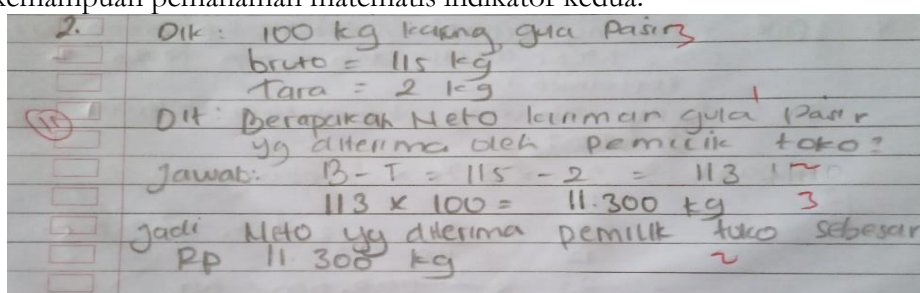 kemampuan pemahaman matematis indikator kedua.
2. Dik : 100 kg karung gula Pasir 3
bruto = 115 kg
Tara = 2 kg
Dit : Berapakah Neto kiriman gula Pasir 1
yg diterima oleh pemilik toko?
Jawab: B - T = 115 - 2 = 113 2
113 x 100 = 11.300 kg 3
Jadi Neto yg diterima pemilik toko sebesar
RP 11.300 kg 2